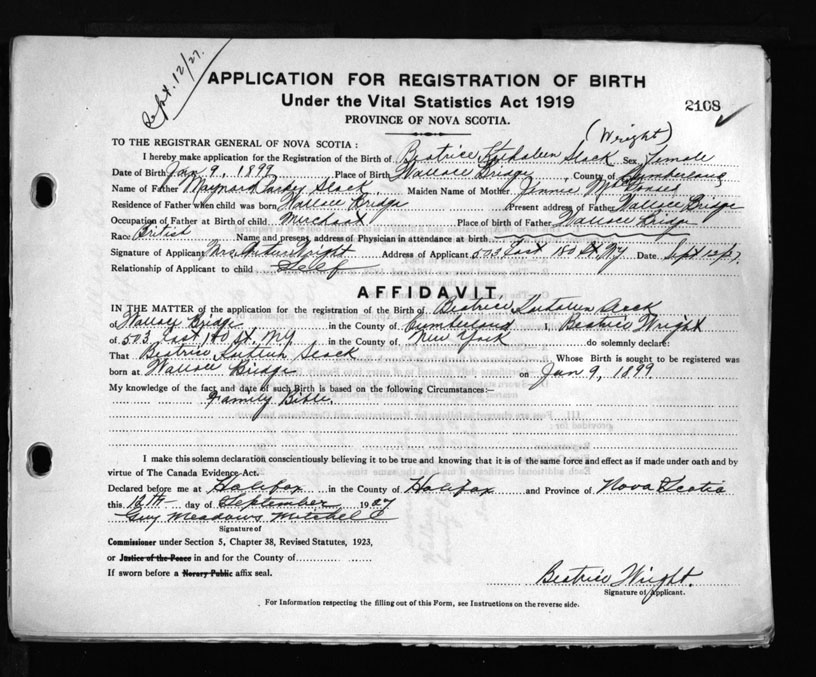 Sept. 12/27.
APPLICATION FOR REGISTRATION OF BIRTH
Under the Vital Statistics Act 1919
2168
PROVINCE OF NOVA SCOTIA.
(Wright)
TO THE REGISTRAR GENERAL OF NOVA SCOTIA:
I hereby make application for the Registration of the Birth of Beatrice Slack Sex Female
Date of Birth Jan 9, 1899, Place of Birth Wallace Bridge, County of Cumberland,
Name of Father Maynard Slack Maiden Name of Mother Jennie
Residence of Father when child was born Wallace Bridge Present address of Father Wallace Bridge
Occupation of Father at Birth of child Merchant Place of birth of Father Wallace Bridge
Race British Name and present address of Physician in attendance at birth
Signature of Applicant Mrs Arthur Wright Address of Applicant 503 East 180 St, NY Date Sept 12
Relationship of Applicant to child Self
AFFIDAVIT
IN THE MATTER of the application for the registration of the Birth of Beatrice
of Wallace Bridge in the County of Cumberland I, Beatrice Wright
of 503 East 180 St. NY in the County of New York do solemnly declare:
That Beatrice Slack Whose Birth is sought to be registered was
born at Wallace Bridge on Jan 9, 1899
My knowledge of the fact and date of such Birth is based on the following Circumstances:—
Family Bible.
I make this solemn declaration conscientiously believing it to be true and knowing that it is of the same force and effect as if made under oath and by
virtue of The Canada Evidence Act.
Declared before me at Halifax in the County of Halifax and Province of Nova Scotia
this 12th day of September 1927
Guy Meadows Mitchel
Signature of
Commissioner under Section 5, Chapter 38, Revised Statutes, 1923,
or Justice of the Peace in and for the County of
If sworn before a Notary Public affix seal.
Beatrice Wright.
Signature of Applicant.
For Information respecting the filling out of this Form, see Instructions on the reverse side.